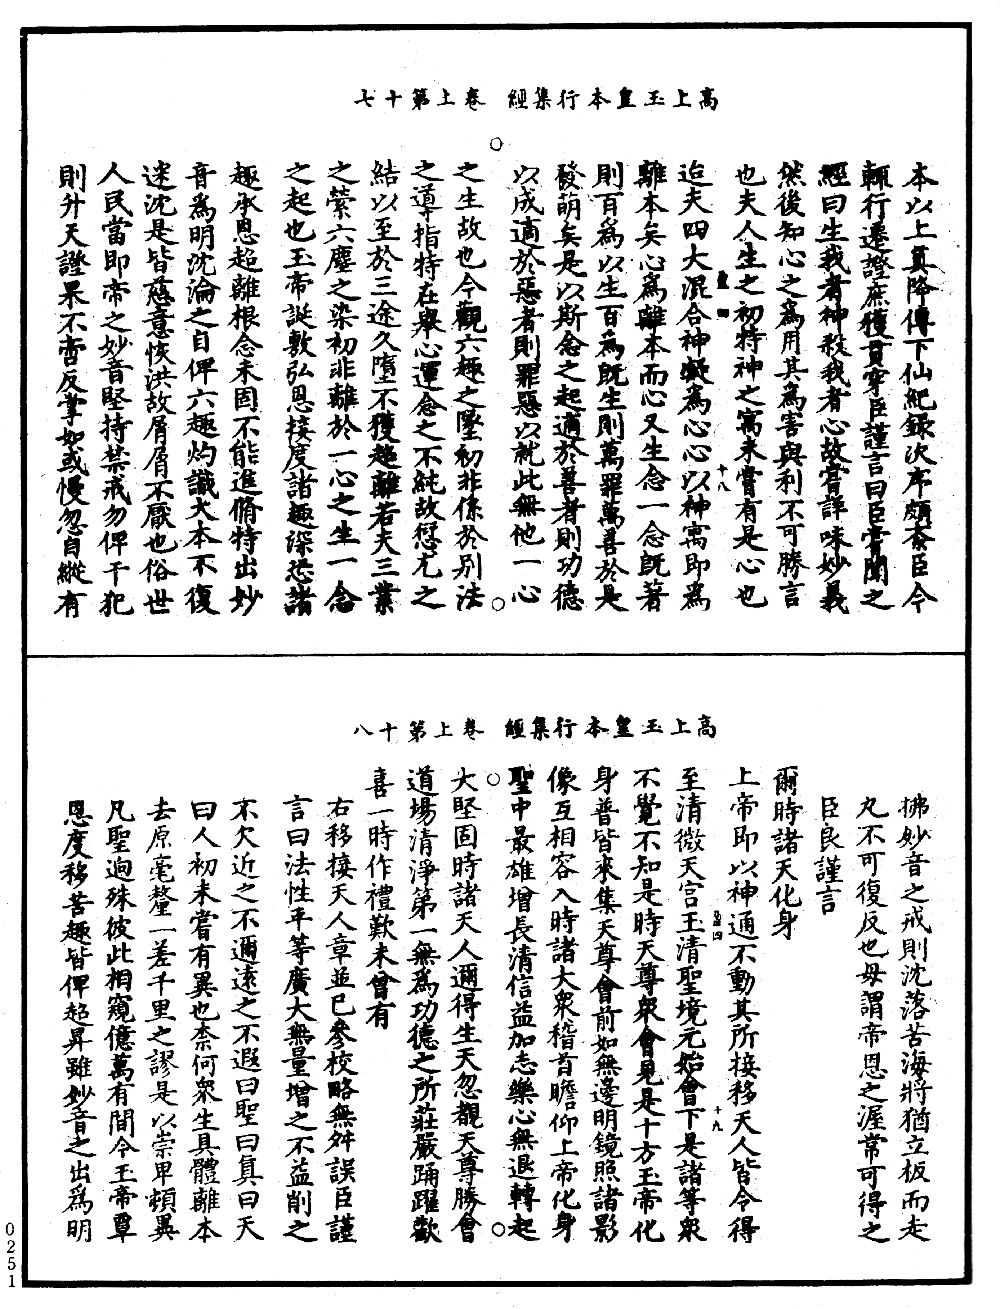 高上玉皇本行集經　卷上第十七
本以上真降傳下仙紀錄次序頗紊臣今
輒行遷證庶獲貫穿臣謹言曰臣嘗聞之
經曰生我者神殺我者心故嘗詳味妙義
然後知心之為用其為害與利不可勝言
也夫人生之初特神之寓未嘗有是心也
迨夫四大混合神凝為心心以神寓即為
離本矣心為離本而心又生念一念既著
則百為以生百為既生則萬罪萬善於是
發萌矣是以斯念之起適於善者則功德
以成適於惡者則罪惡以就此無他一心
之生故也今觀六趣之墜初非係於別法
之導指特在舉心運念之不純故愆尤之
結以至於三途久墮不獲超離若夫三業
之縈六塵之染初非離於一心之生一念
之起也玉帝誕敷弘恩接度諸趣深恐諸
趣承恩超離根念未固不能進脩特出妙
音為明沈淪之自俾六趣灼識大本不復
迷沈是皆慈意恢洪故屑屑不厭也俗世
人民當即帝之妙音堅持禁戒勿俾干犯
則升天證果不啻反掌如或慢忽自縱有
高上玉皇本行集經　卷上第十八
拂妙音之戒則沈落苦海將猶立板而走
丸不可復反也毋謂帝恩之渥常可得之
臣良謹言
爾時諸天化身
上帝即以神通不動其所接移天人皆令得
至清微天宮玉清聖境元始會下是諸等眾
不覺不知是時天尊眾會見是十方玉帝化
身普皆來集天尊會前如無邊明鏡照諸影
像互相容入時諸大眾稽首瞻仰上帝化身
聖中最雄增長清信益加志樂心無退轉起
大堅固時諸天人邇得生天忽覩天尊勝會
道場清淨第一無為功德之所莊嚴踊躍歡
喜一時作禮歎未曾有
右移接天人章並已參校略無舛誤臣謹
言曰法性平等廣大無量增之不益削之
不欠近之不邇遠之不遐曰聖曰真曰天
曰人初未嘗有異也柰何眾生具體離本
去原毫釐一差千里之謬是以崇卑頓異
凡聖逈殊彼此相窺億萬有間今玉帝覃
恩度移苦趣皆俾超昇雖妙音之出為明
十八
十九
0251